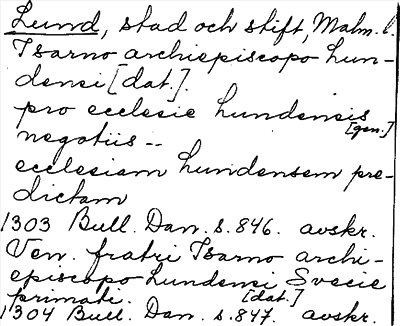 Lund, stad och stift, Malm. l.
Isarno archiepiscopo Lun-
densi [dat.].
pro ecclesie Lundensis
[gen.]
negotiis --
ecclesiam Lundensem pre-
dictam
1303 Bull. Dan. s. 846. avskr.
Ven. fratri Isarno archi-
episcopo Lundensi Svecie
primati. [dat.]
1304 Bull. Dan. s. 847. avskr.